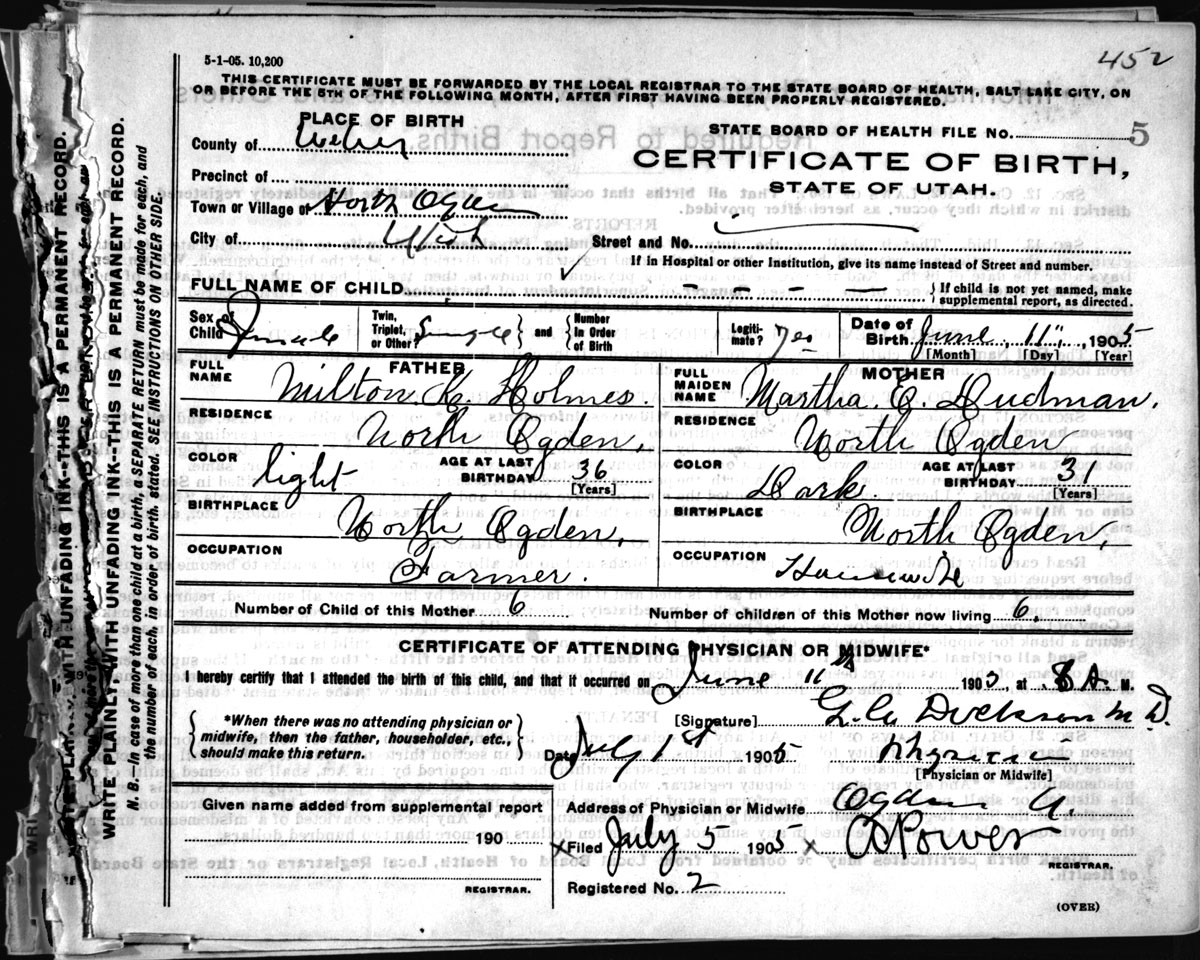 452
5-1-05. 10,200
THIS CERTIFICATE MUST BE FORWARDED BY THE LOCAL REGISTRAR TO THE STATE BOARD OF HEALTH, SALT LAKE CITY, ON
OR BEFORE THE 5TH OF THE FOLLOWING MONTH, AFTER FIRST HAVING BEEN PROPERLY REGISTERED.
PLACE OF BIRTH
County of Weber
Precinct of
Town or Village of North Ogden
City of Utah
STATE BOARD OF HEALTH FILE NO. 5
CERTIFICATE OF BIRTH,
STATE OF UTAH.
Street and No.
If in Hospital or other Institution, give its name instead of Street and number.
FULL NAME OF CHILD - - - - { If child is not yet named, make
supplemental report, as directed.
Sex of Child Female
Twin, Triplet, or Other? Single } and { Number In Order of Birth
Legiti-mate? Yes
Date of Birth June 11", 1905
[Month] [Day] [Year]
FATHER
FULL NAME Milton H. Holmes
RESIDENCE North Ogden,
COLOR light AGE AT LAST BIRTHDAY 36 [Years]
BIRTHPLACE North Ogden,
OCCUPATION Farmer.
MOTHER
FULL MAIDEN NAME Martha. E. Dudman.
RESIDENCE North Ogden
COLOR Dark. AGE AT LAST BIRTHDAY 31 [Years]
BIRTHPLACE North Ogden,
OCCUPATION Housewife
Number of Child of this Mother 6
Number of children of this Mother now living 6,
CERTIFICATE OF ATTENDING PHYSICIAN OR MIDWIFE*
I hereby certify that I attended the birth of this child, and that it occurred on June 11th 1905, at 8 A. M.
{ *When there was no attending physician or
midwife, then the father, householder, etc.,
should make this return. }
[Signature] Dickson M.D.
Date July 1st 1905 Physician
[Physician or Midwife]
Given name added from supplemental report
190
REGISTRAR.
Address of Physician or Midwife Ogden U.
x Filed July 5 1905 x Powers
REGISTRAR.
Registered No. 2
(OVER)
WRITE PLAINLY WITH UNFADING INK--THIS IS A PERMANENT RECORD.
N. B.--In case of more than one child at a birth, a SEPARATE RETURN must be made for each, and
the number of each, in order of birth, stated. SEE INSTRUCTIONS ON OTHER SIDE.
WITH UNFADING INK--THIS IS A PERMANENT RECORD.